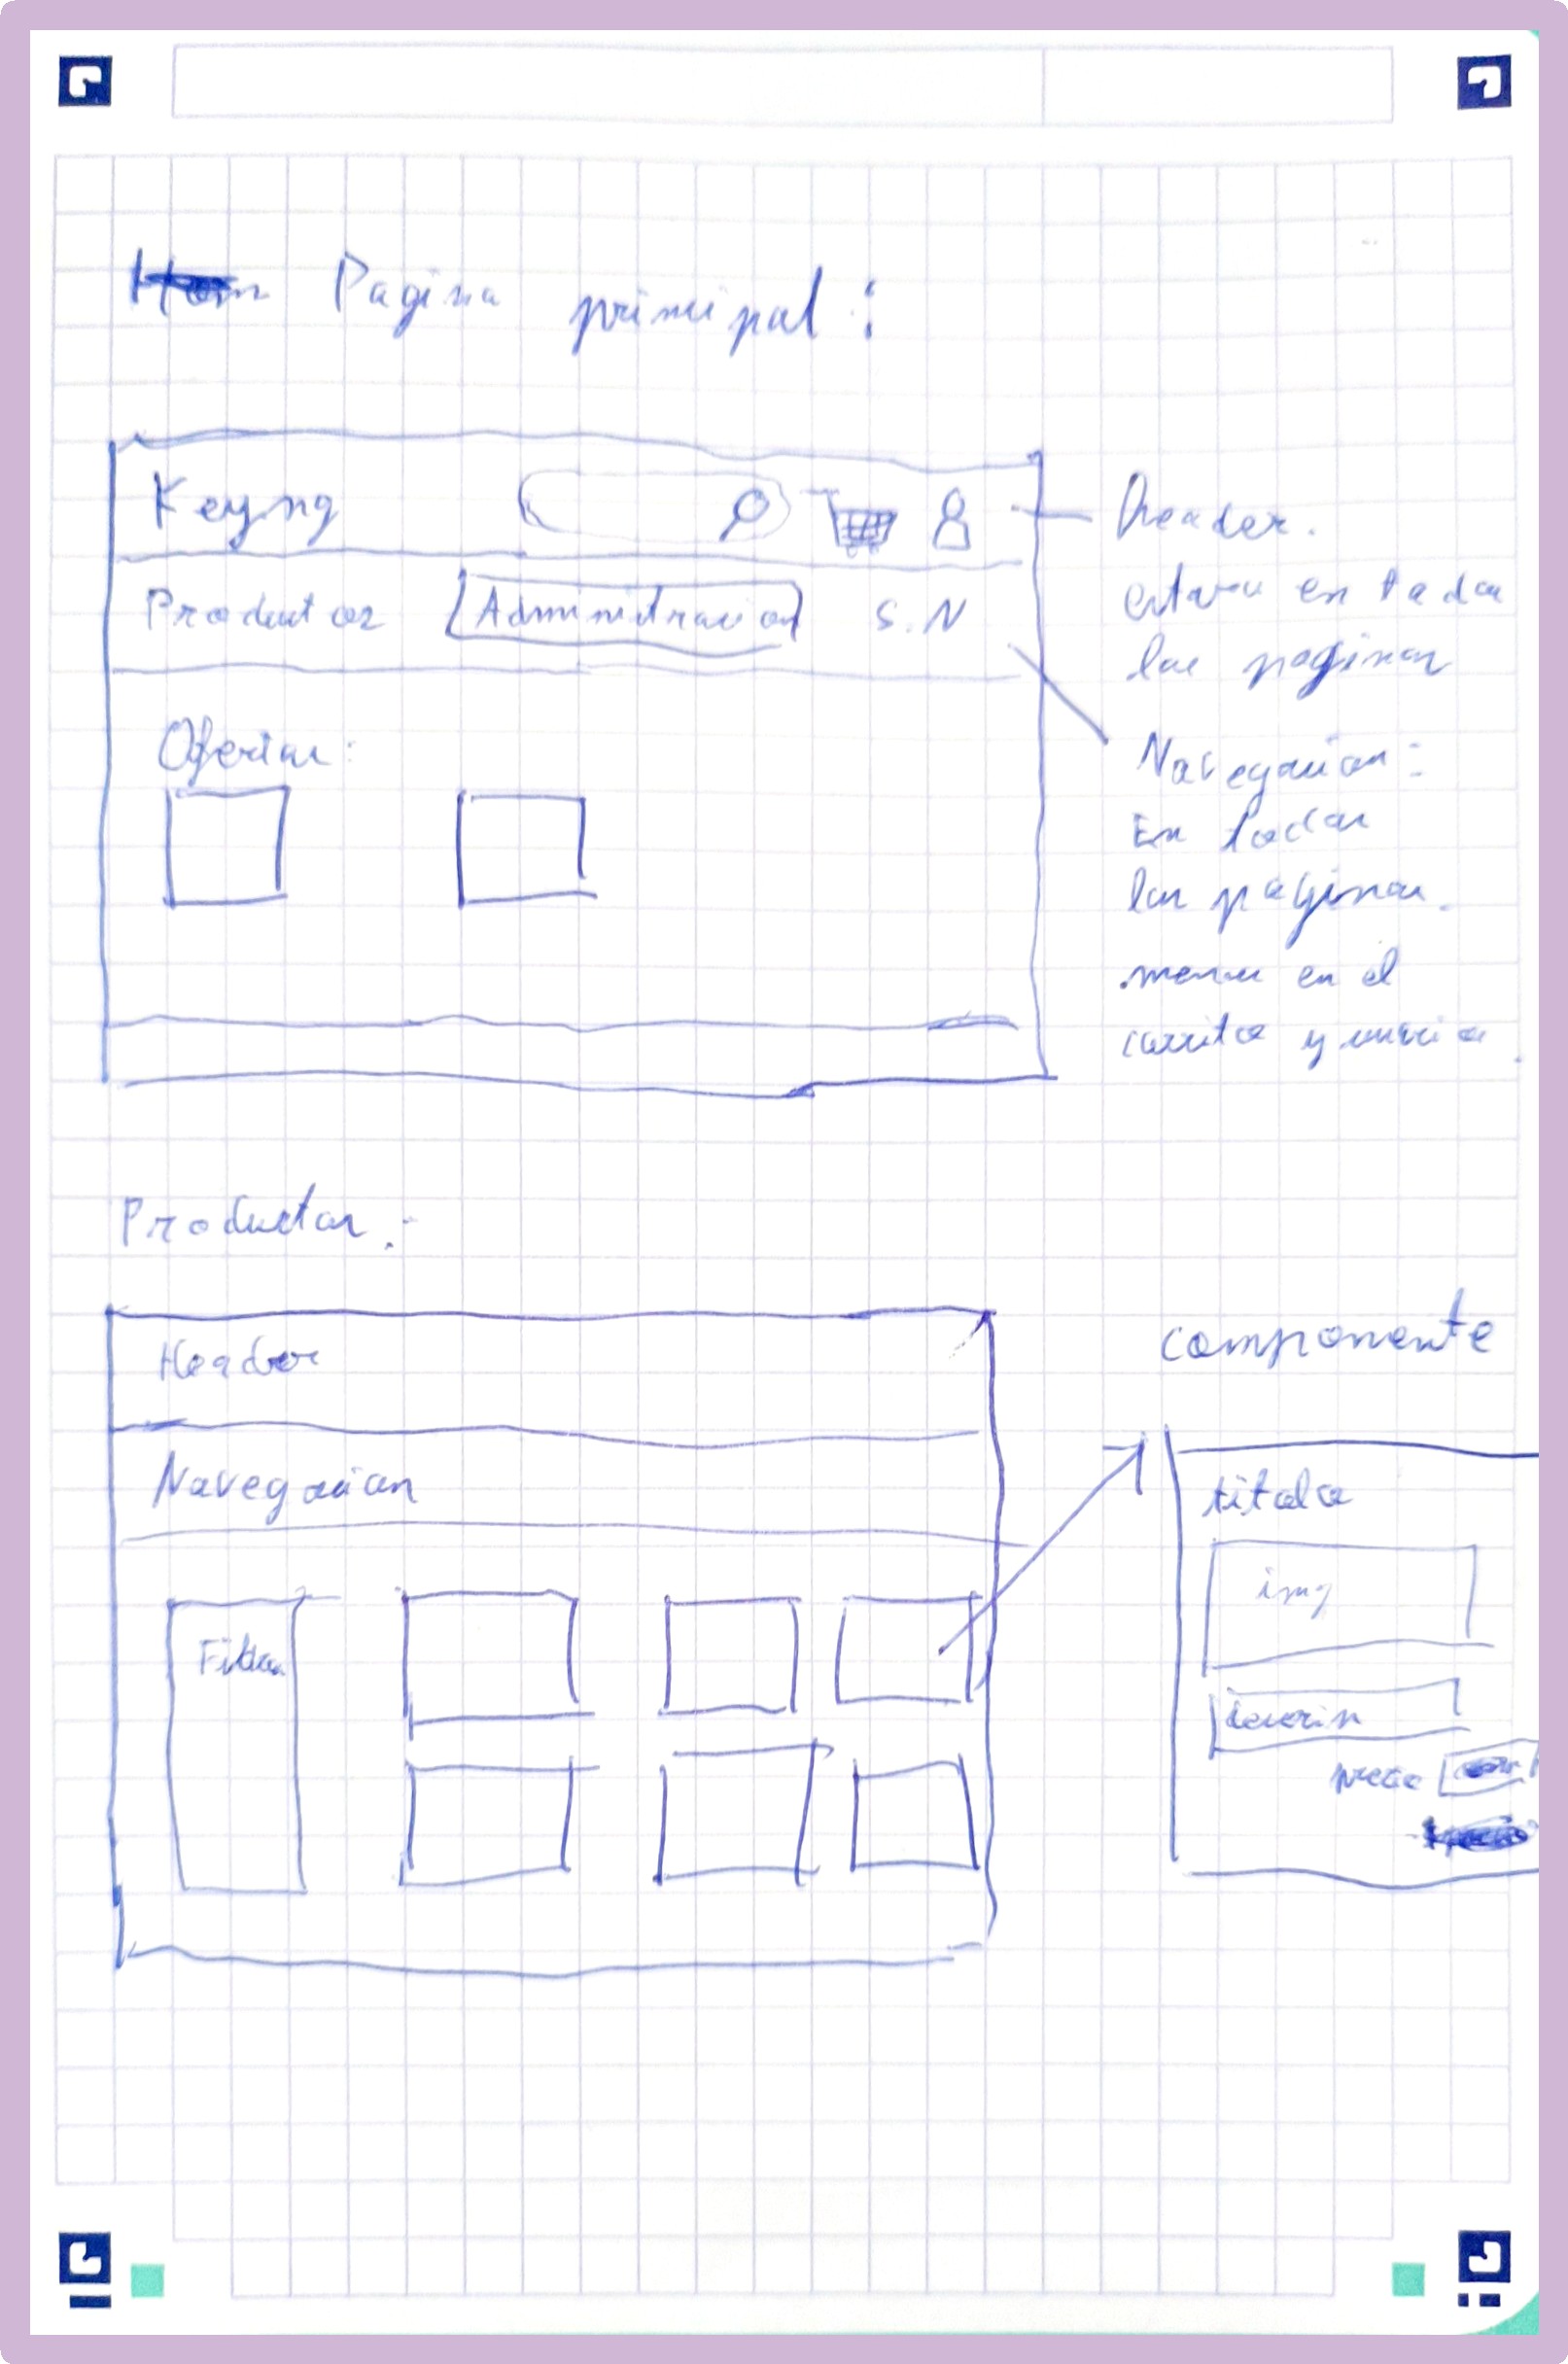 Pagina principal:
Keyng
Productos Administracion S.N
Ofertas:
header.
estara en todas
las paginas
Navegacion:
En todas
las paginas.
menu en el
carrito y usuario.
Productos:
Header
Navegacion
Filtros
componente
titulo
img
precio